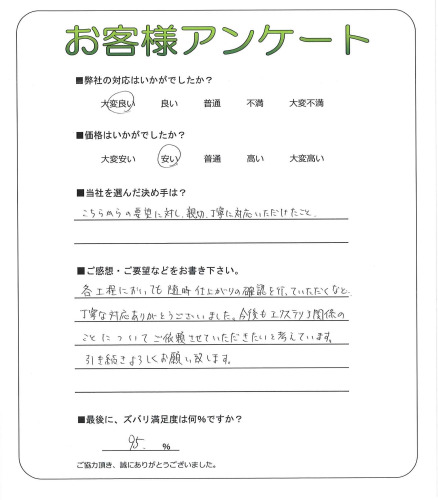 お客様アンケート
■弊社の対応はいかがでしたか？
大変良い 良い 普通 不満 大変不満
■価格はいかがでしたか？
大変安い 安い 普通 高い 大変高い
■当社を選んだ決め手は？
こちらからの要望に対し、親切、丁寧に対応いただけたこと。
■ご感想・ご要望などをお書き下さい。
各工程においても随時仕上がりの確認を行っていただくなど、
丁寧な対応ありがとうございました。今後もエクステリア関係の
ことについてご依頼させていただきたいと考えています。
引き続きよろしくお願い致します。
■最後に、ズバリ満足度は何%ですか？
95. %
ご協力頂き、誠にありがとうございました。